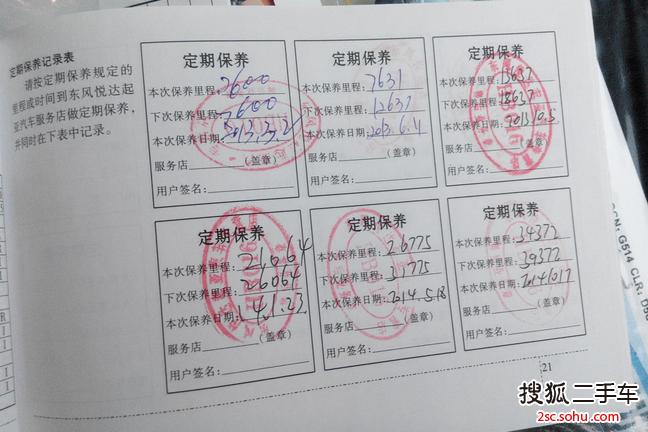 定期保养记录表
请按定期保养规定的
里程或时间到东风悦达起
亚汽车服务店做定期保养,
并同时在下表中记录。
定期保养
本次保养里程:2600
下次保养里程:7600
本次保养日期:
服务店 (盖章)
用户签名:
定期保养
本次保养里程:7631
下次保养里程:12631
本次保养日期:2013.6.4
服务店 (盖章)
用户签名:
定期保养
本次保养里程:13637
下次保养里程:18637
本次保养日期:2013.10.5
服务店 (盖章)
用户签名:
定期保养
本次保养里程:21064
下次保养里程:26064
本次保养日期:14.1.23
服务店 (盖章)
用户签名:
定期保养
本次保养里程:26775
下次保养里程:31775
本次保养日期:2014.5.18
服务店 (盖章)
用户签名:
定期保养
本次保养里程:34372
下次保养里程:39372
本次保养日期:20141017
服务店 (盖章)
用户签名:
21
G514 CLR:
搜狐二手车
2sc.sohu.com